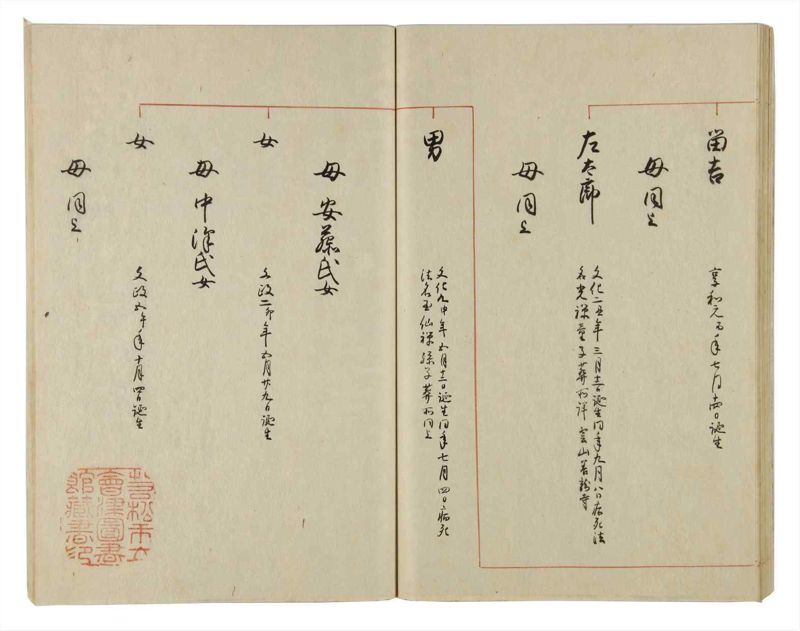 留吉
母 同上
享和元酉年七月十四日誕生
左太郎
母 同上
文化二丑年三月十二日誕生同年九月八日病死法
名光禅童子葬所詳雲山
男
文化九申年五月十二日誕生同年七月四日病死
法名玉仙禅孩子葬所同上
母 安藤氏女
女
文政二卯年五月廿九日誕生
母 中澤氏女
女
文政五午年十月四日誕生
母 同上
若松市立
會津圖書
館藏書印